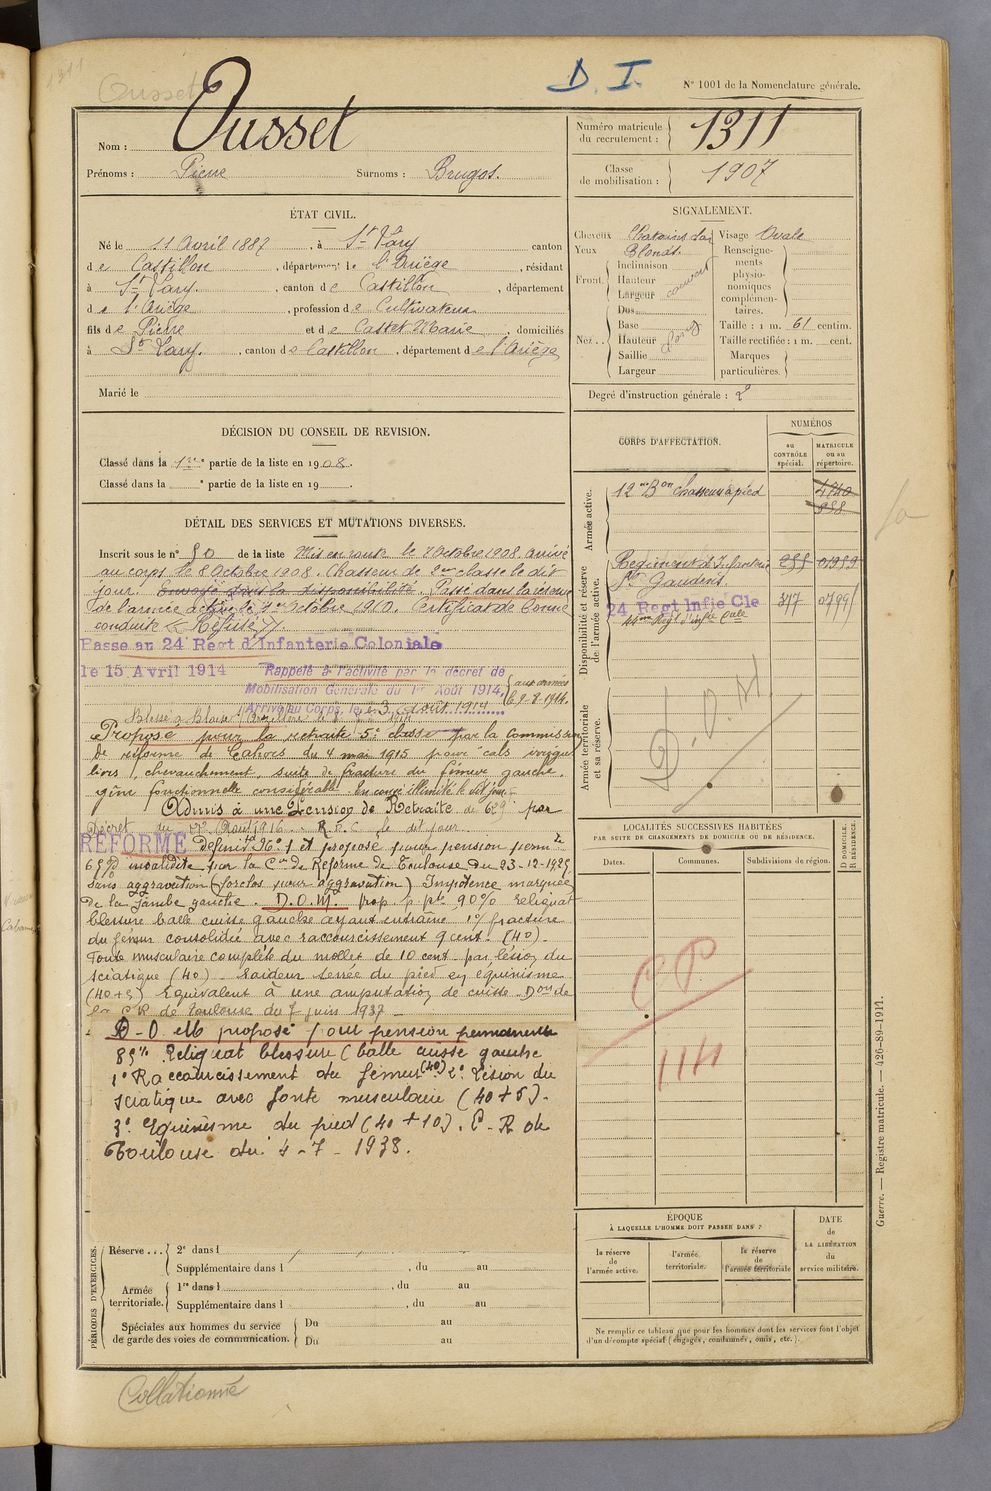 1311
Ousset
D. I.
N° 1001 de la Nomenclature générale.
Nom : Ousset
Prénoms : Pierre Surnoms : Brugas.
Numéro matricule du recrutement : 1311
Classe de mobilisation : 1907
ÉTAT CIVIL.
Né le 11 Avril 1887, à St Lary canton
de Castillon, département de l'Ariège, résidant
à St Lary, canton de Castillon, département
de l'Ariège, profession de Cultivateur
fils de Pierre et de Castet Marie, domiciliés
à St Lary, canton de Castillon, département de l'Ariège
Marié le
SIGNALEMENT.
Cheveux Chatains
Yeux Blonds.
Front Inclinaison
Hauteur
Largeur
Nez Dos
Base
Hauteur
Saillie
Largeur
Visage Ovale
Renseignements physionomiques complémentaires.
Taille : 1 m. 61 centim.
Taille rectifiée : 1 m. cent.
Marques particulières.
Degré d'instruction générale : 2
DÉCISION DU CONSEIL DE REVISION.
Classé dans la 1re partie de la liste en 1908.
Classé dans la e partie de la liste en 19
CORPS D'AFFECTATION.
NUMÉROS
au CONTRÔLE spécial.
MATRICULE ou au répertoire.
Armée active.
12me Bon Chasseurs à pied
Disponibilité et réserve de l'armée active.
Régiment d'Infanterie 01959
St Gaudens.
24 Regt Infie Cle 347
Régt d'infie Cale
Armée territoriale et sa réserve.
D.O.M.
DÉTAIL DES SERVICES ET MUTATIONS DIVERSES.
Inscrit sous le n° 50 de la liste Mis en route le 7 Octobre 1908. Arrivé
au corps le 8 Octobre 1908. Chasseur de 2me classe le dit
jour. envoyé dans la disponibilité. Passé dans la réserve
de l'armée active le 1er Octobre 1910. Certificat de bonne
conduite « Refusé ».
Passe au 24 Regt d'Infanterie Coloniale
le 15 Avril 1914 Rappelé à l'activité par le décret de
Mobilisation Générale du 1er Août 1914,
Arrivé au Corps, le 3 Août 1914
aux armées le 9-8-1914.
Proposé pour la retraite 5e classe par la commission
de réforme de Cahors du 4 mai 1915 pour cals irrégu
liers, chevauchement, suite de fracture du fémur gauche.
gêne fonctionnelle considérable. En congé illimité le dit jour.
Admis à une Pension de Retraite de 629 par
Décret du Août 1916. R.D.C. le dit jour.
RÉFORMÉ définitt n° 1 et proposé pour pension permte
65% invalidité par la Con de Réforme de Toulouse du 23-12-1925
sans aggravation (forclos pour aggravation) Impotence marquée
de la jambe gauche. D.O.M. prop. p. pte 90% reliquat
blessure balle cuisse gauche ayant entraîné 1° fracture
du fémur consolidée avec raccourcissement 9 cent. (40).
Fonte musculaire complète du mollet de 10 cent. par lésion du
sciatique (40). Raideur serrée du pied en équinisme
(40+5) Équivalent à une amputation de cuisse. Don de
la CR de Toulouse du 7 juin 1937
D-O elb proposé pour pension permanente
85% Reliquat blessure (balle cuisse gauche
1° Raccourcissement du fémur (40) 2° Lésion du
sciatique avec fonte musculaire (40+5).
3° Equinisme du pied (40+10). C-R de
Toulouse du 4-7-1938.
LOCALITÉS SUCCESSIVES HABITÉES
PAR SUITE DE CHANGEMENTS DE DOMICILE OU DE RÉSIDENCE.
Dates. Communes. Subdivisions de région. D DOMICILE. R RÉSIDENCE.
CP
1141
ÉPOQUE
À LAQUELLE L'HOMME DOIT PASSER DANS :
la réserve de l'armée active.
l'armée territoriale.
la réserve de l'armée territoriale
DATE de LA LIBÉRATION du service militaire.
Ne remplir ce tableau que pour les hommes dont les services font l'objet d'un décompte spécial (engagés, condamnés, omis, etc.).
PÉRIODES D'EXERCICES.
Réserve... 2e dans l
Supplémentaire dans l , du au
Armée territoriale. 1re dans l , du au
Supplémentaire dans l , du au
Spéciales aux hommes du service de garde des voies de communication. Du au
Du au
Guerre. — Registre matricule. — 426-89-1911.
Collationné